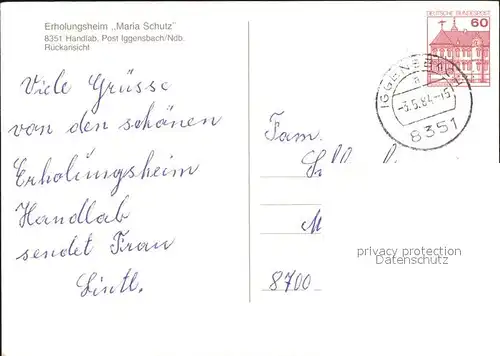 Erholungsheim „Maria Schutz"
8351 Handlab, Post Iggensbach/Ndb.
Rückansicht
DEUTSCHE BUNDESPOST
60
IGGENSBACH
a
-3.5.84-15
8351
Viele Grüsse
von den schönen
Erholungsheim
Handlab
sendet Frau
Lintl.
Fam.
M
8700
privacy protection
Datenschutz